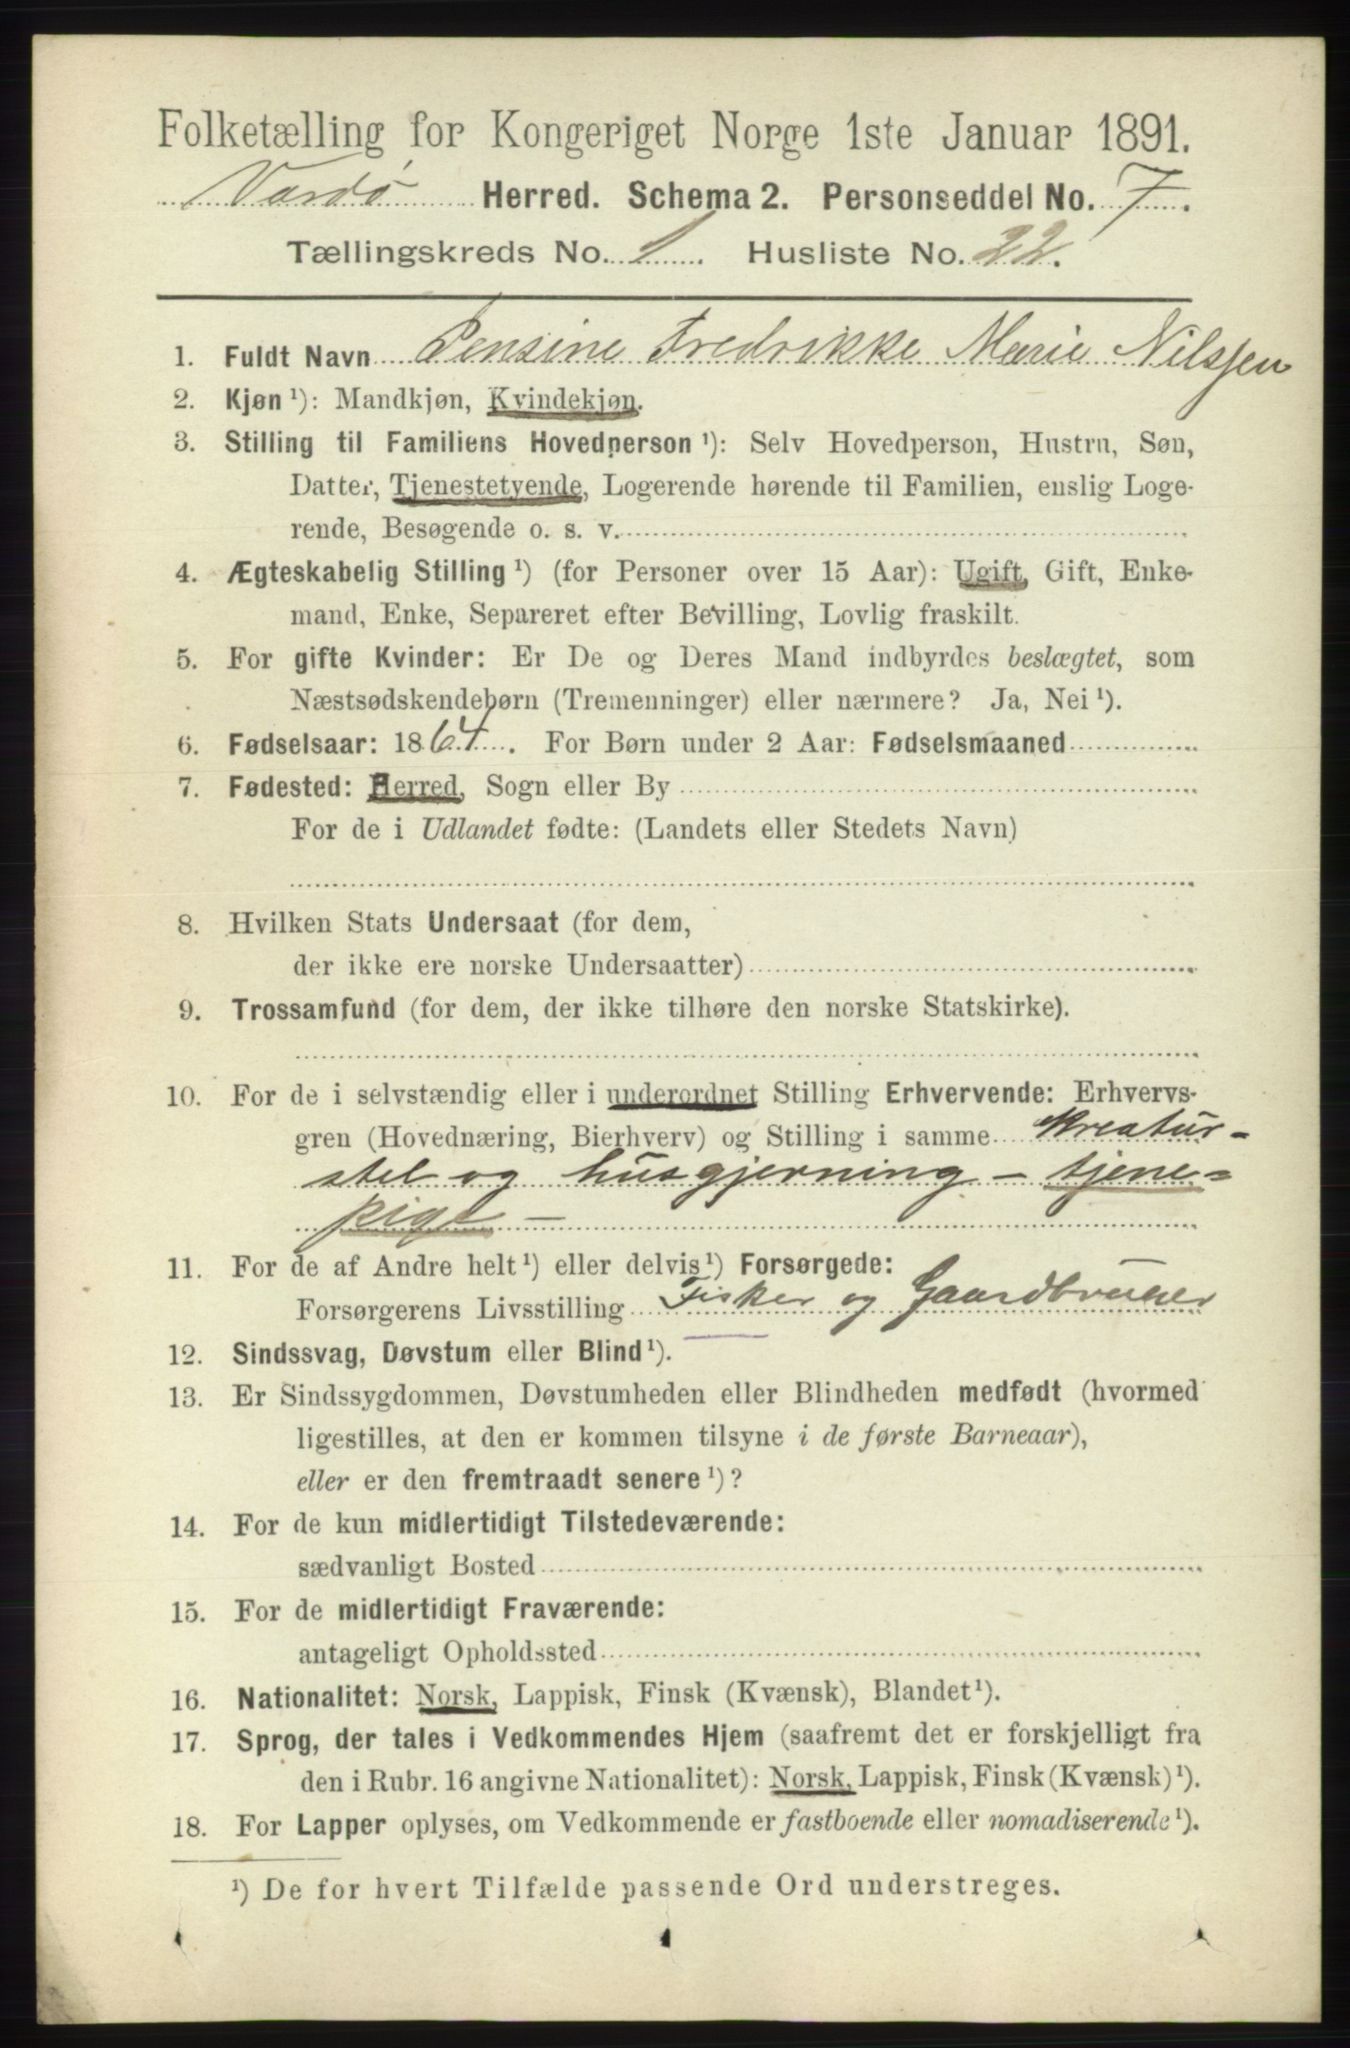 Folketælling for Kongeriget Norge 1ste Januar 1891.
Vardø Herred. Schema 2. Personseddel No. 7.
Tællingskreds No. 1. Husliste No. 22.
1. Fuldt Navn Pensine Fredrikke Marie Nilssen
2. Kjøn ¹): Mandkjøn, Kvindekjøn.
3. Stilling til Familiens Hovedperson ¹): Selv Hovedperson, Hustru, Søn,
Datter, Tjenestetyende, Logerende hørende til Familien, enslig Loge-
rende, Besøgende o. s. v.
4. Ægteskabelig Stilling ¹) (for Personer over 15 Aar): Ugift, Gift, Enke-
mand, Enke, Separeret efter Bevilling, Lovlig fraskilt.
5. For gifte Kvinder: Er De og Deres Mand indbyrdes beslægtet, som
Næstsødskendebørn (Tremenninger) eller nærmere? Ja, Nei ¹).
6. Fødselsaar: 1864. For Børn under 2 Aar: Fødselsmaaned
7. Fødested: Herred, Sogn eller By
For de i Udlandet fødte: (Landets eller Stedets Navn)
8. Hvilken Stats Undersaat (for dem,
der ikke ere norske Undersaatter)
9. Trossamfund (for dem, der ikke tilhøre den norske Statskirke).
10. For de i selvstændig eller i underordnet Stilling Erhvervende: Erhvervs-
gren (Hovednæring, Bierhverv) og Stilling i samme Kreatur-
stel og husgjerning - tjene-
pige -
11. For de af Andre helt ¹) eller delvis ¹) Forsørgede:
Forsørgerens Livsstilling Fisker og Gaardbruger
12. Sindssvag, Døvstum eller Blind ¹).
13. Er Sindssygdommen, Døvstumheden eller Blindheden medfødt (hvormed
ligestilles, at den er kommen tilsyne i de første Barneaar),
eller er den fremtraadt senere ¹)?
14. For de kun midlertidigt Tilstedeværende:
sædvanligt Bosted
15. For de midlertidigt Fraværende:
antageligt Opholdssted
16. Nationalitet: Norsk, Lappisk, Finsk (Kvænsk), Blandet ¹).
17. Sprog, der tales i Vedkommendes Hjem (saafremt det er forskjelligt fra
den i Rubr. 16 angivne Nationalitet): Norsk, Lappisk, Finsk (Kvænsk) ¹).
18. For Lapper oplyses, om Vedkommende er fastboende eller nomadiserende ¹).
¹) De for hvert Tilfælde passende Ord understreges.